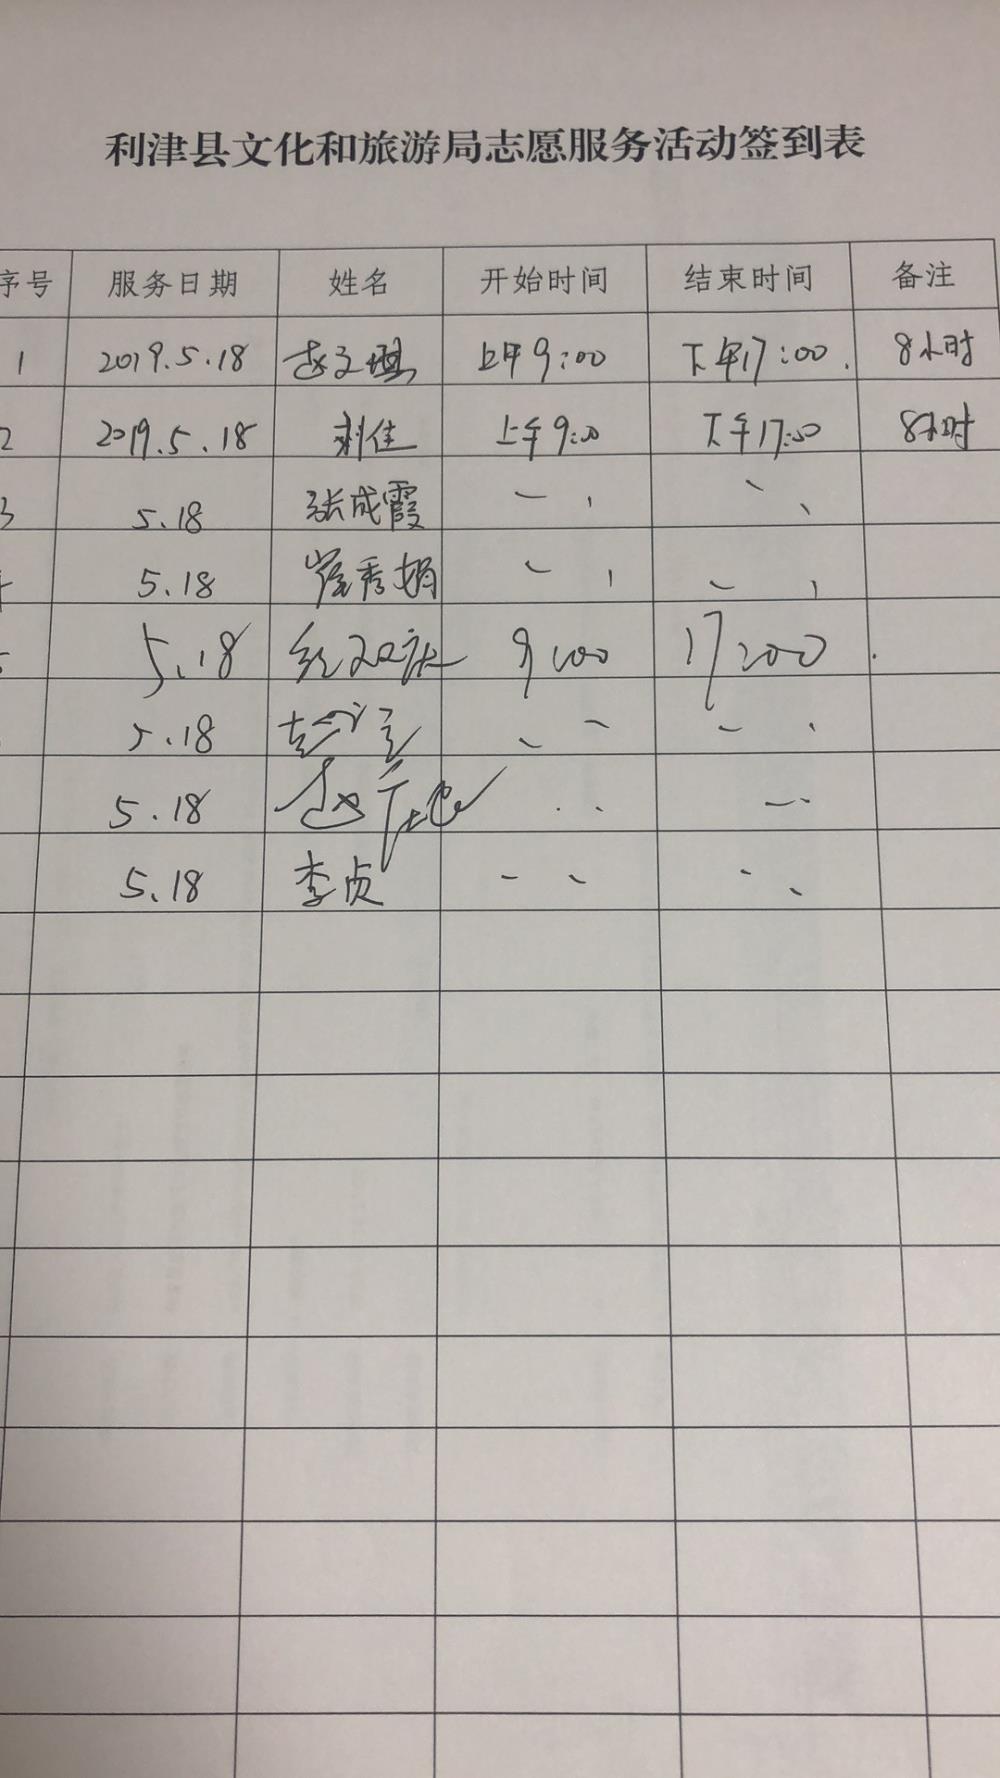 利津县文化和旅游局志愿服务活动签到表
序号 服务日期 姓名 开始时间 结束时间 备注
1 2019.5.18 上午9:00 下午17:00. 8小时
2 2019.5.18 刘佳 上午9:00 下午17:00 8小时
3 5.18 张成霞
5.18 崔秀娟
5.18 9:00 17:00
5.18
5.18
5.18 李贞